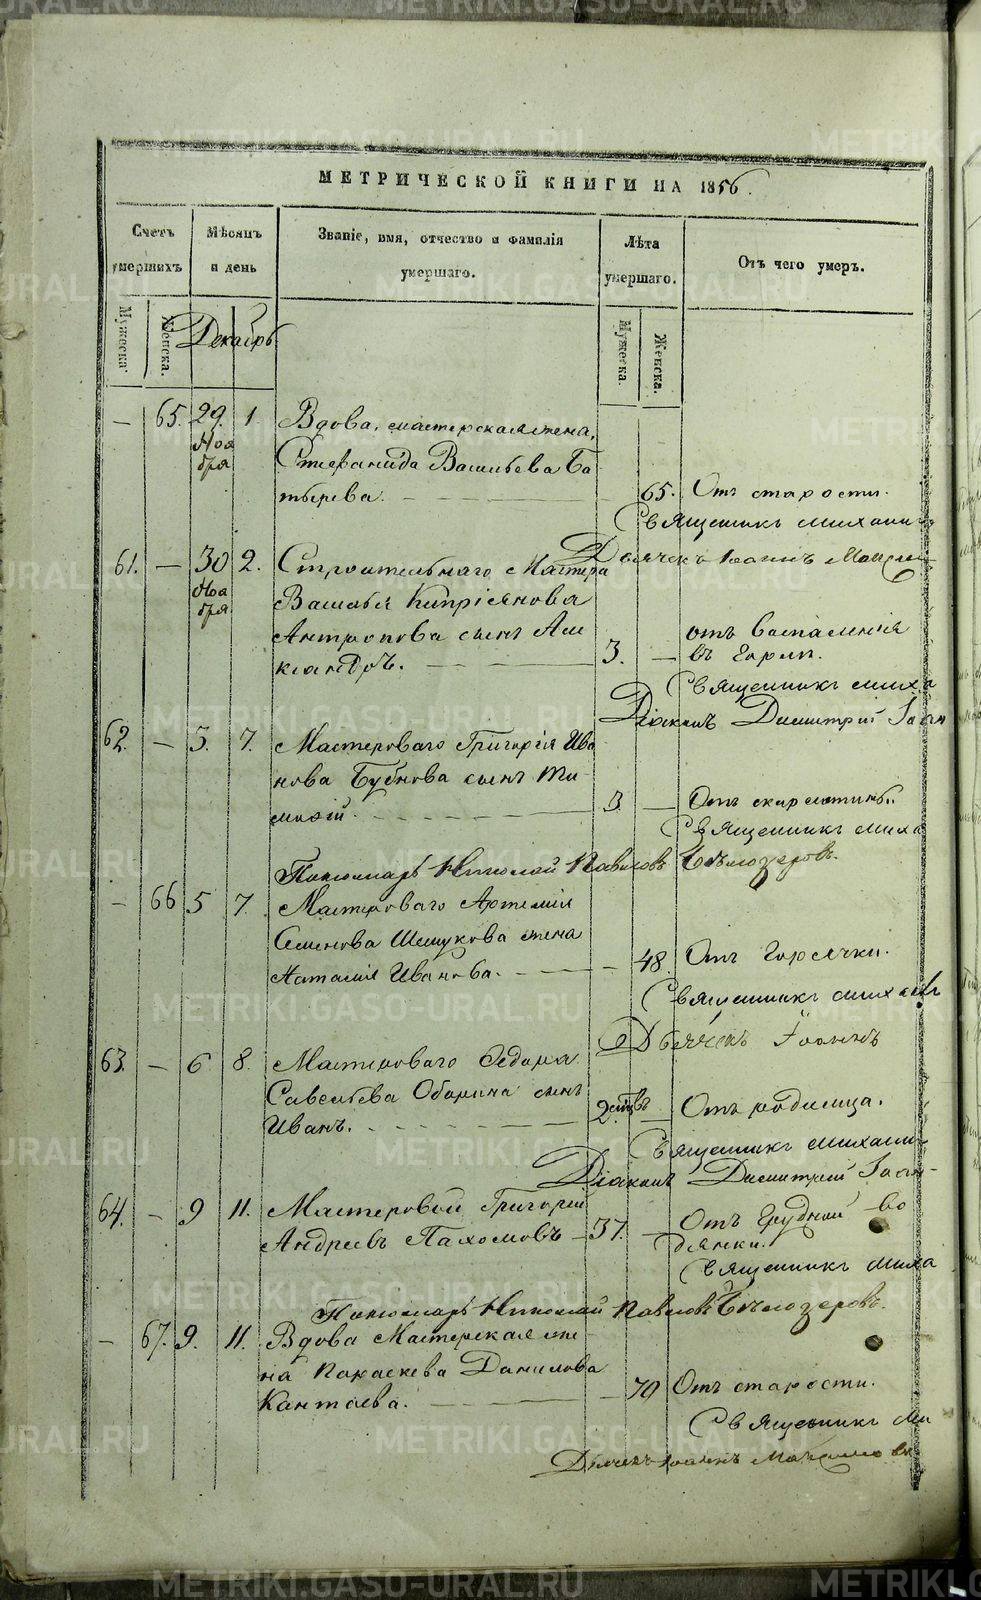 МЕТРИЧЕСКОЙ КНИГИ НА 1856.
Счетъ умершихъ
Мѣсяцъ и день
Званіе, имя, отчество и фамилія умершаго.
Лѣта умершаго.
Отъ чего умеръ.
Мужеска.
Женска.
Декабрь
Мужеска.
Женска.
— 65. 29. 1. Вдова, мастерская жена,
Ноя
бря
Стефанида Васильева Ба
тырева. — 65. Отъ старости.
Священникъ Михаил
Дьячекъ Іоаннъ
61. — 30 2. Строительнаго Мастера
Ноя
бря
Василья Кипріянова
Антропова сынъ Але
ксандръ. — 3. — отъ воспаленія
въ горлѣ.
Священникъ Миха
Діаконъ Димитрій
62. — 5. 7. Мастероваго Григорія Ива
нова Бубнова сынъ Ти
моѳій. — 3. — Отъ скарлатины.
Священникъ Миха
Пономарь Николай Павловъ Бѣлозеровъ.
— 66 5 7. Мастероваго Артемія
Семенова Шешукова жена
Наталія Иванова. — 48. Отъ Горячки.
Священникъ Михаилъ
Дьячекъ Іоаннъ
63. — 6 8. Мастероваго Ѳедора
Савельева Обарина сынъ
Иванъ. — 2. — Отъ родимца.
Священникъ Михаил
Діаконъ Димитрій
64. — 9 11. Мастеровой Григорій
Андреевъ Пахомовъ — 37. — Отъ Грудной во
дянки.
Священникъ Миха
Пономарь Николай Павловъ Бѣлозеровъ.
— 67. 9. 11. Вдова Мастерская же
на Параскева Данилова
Кантаева. — 70 Отъ старости.
Священникъ Ми
Дьячекъ Іоаннъ
METRIKI.GASO-URAL.RU